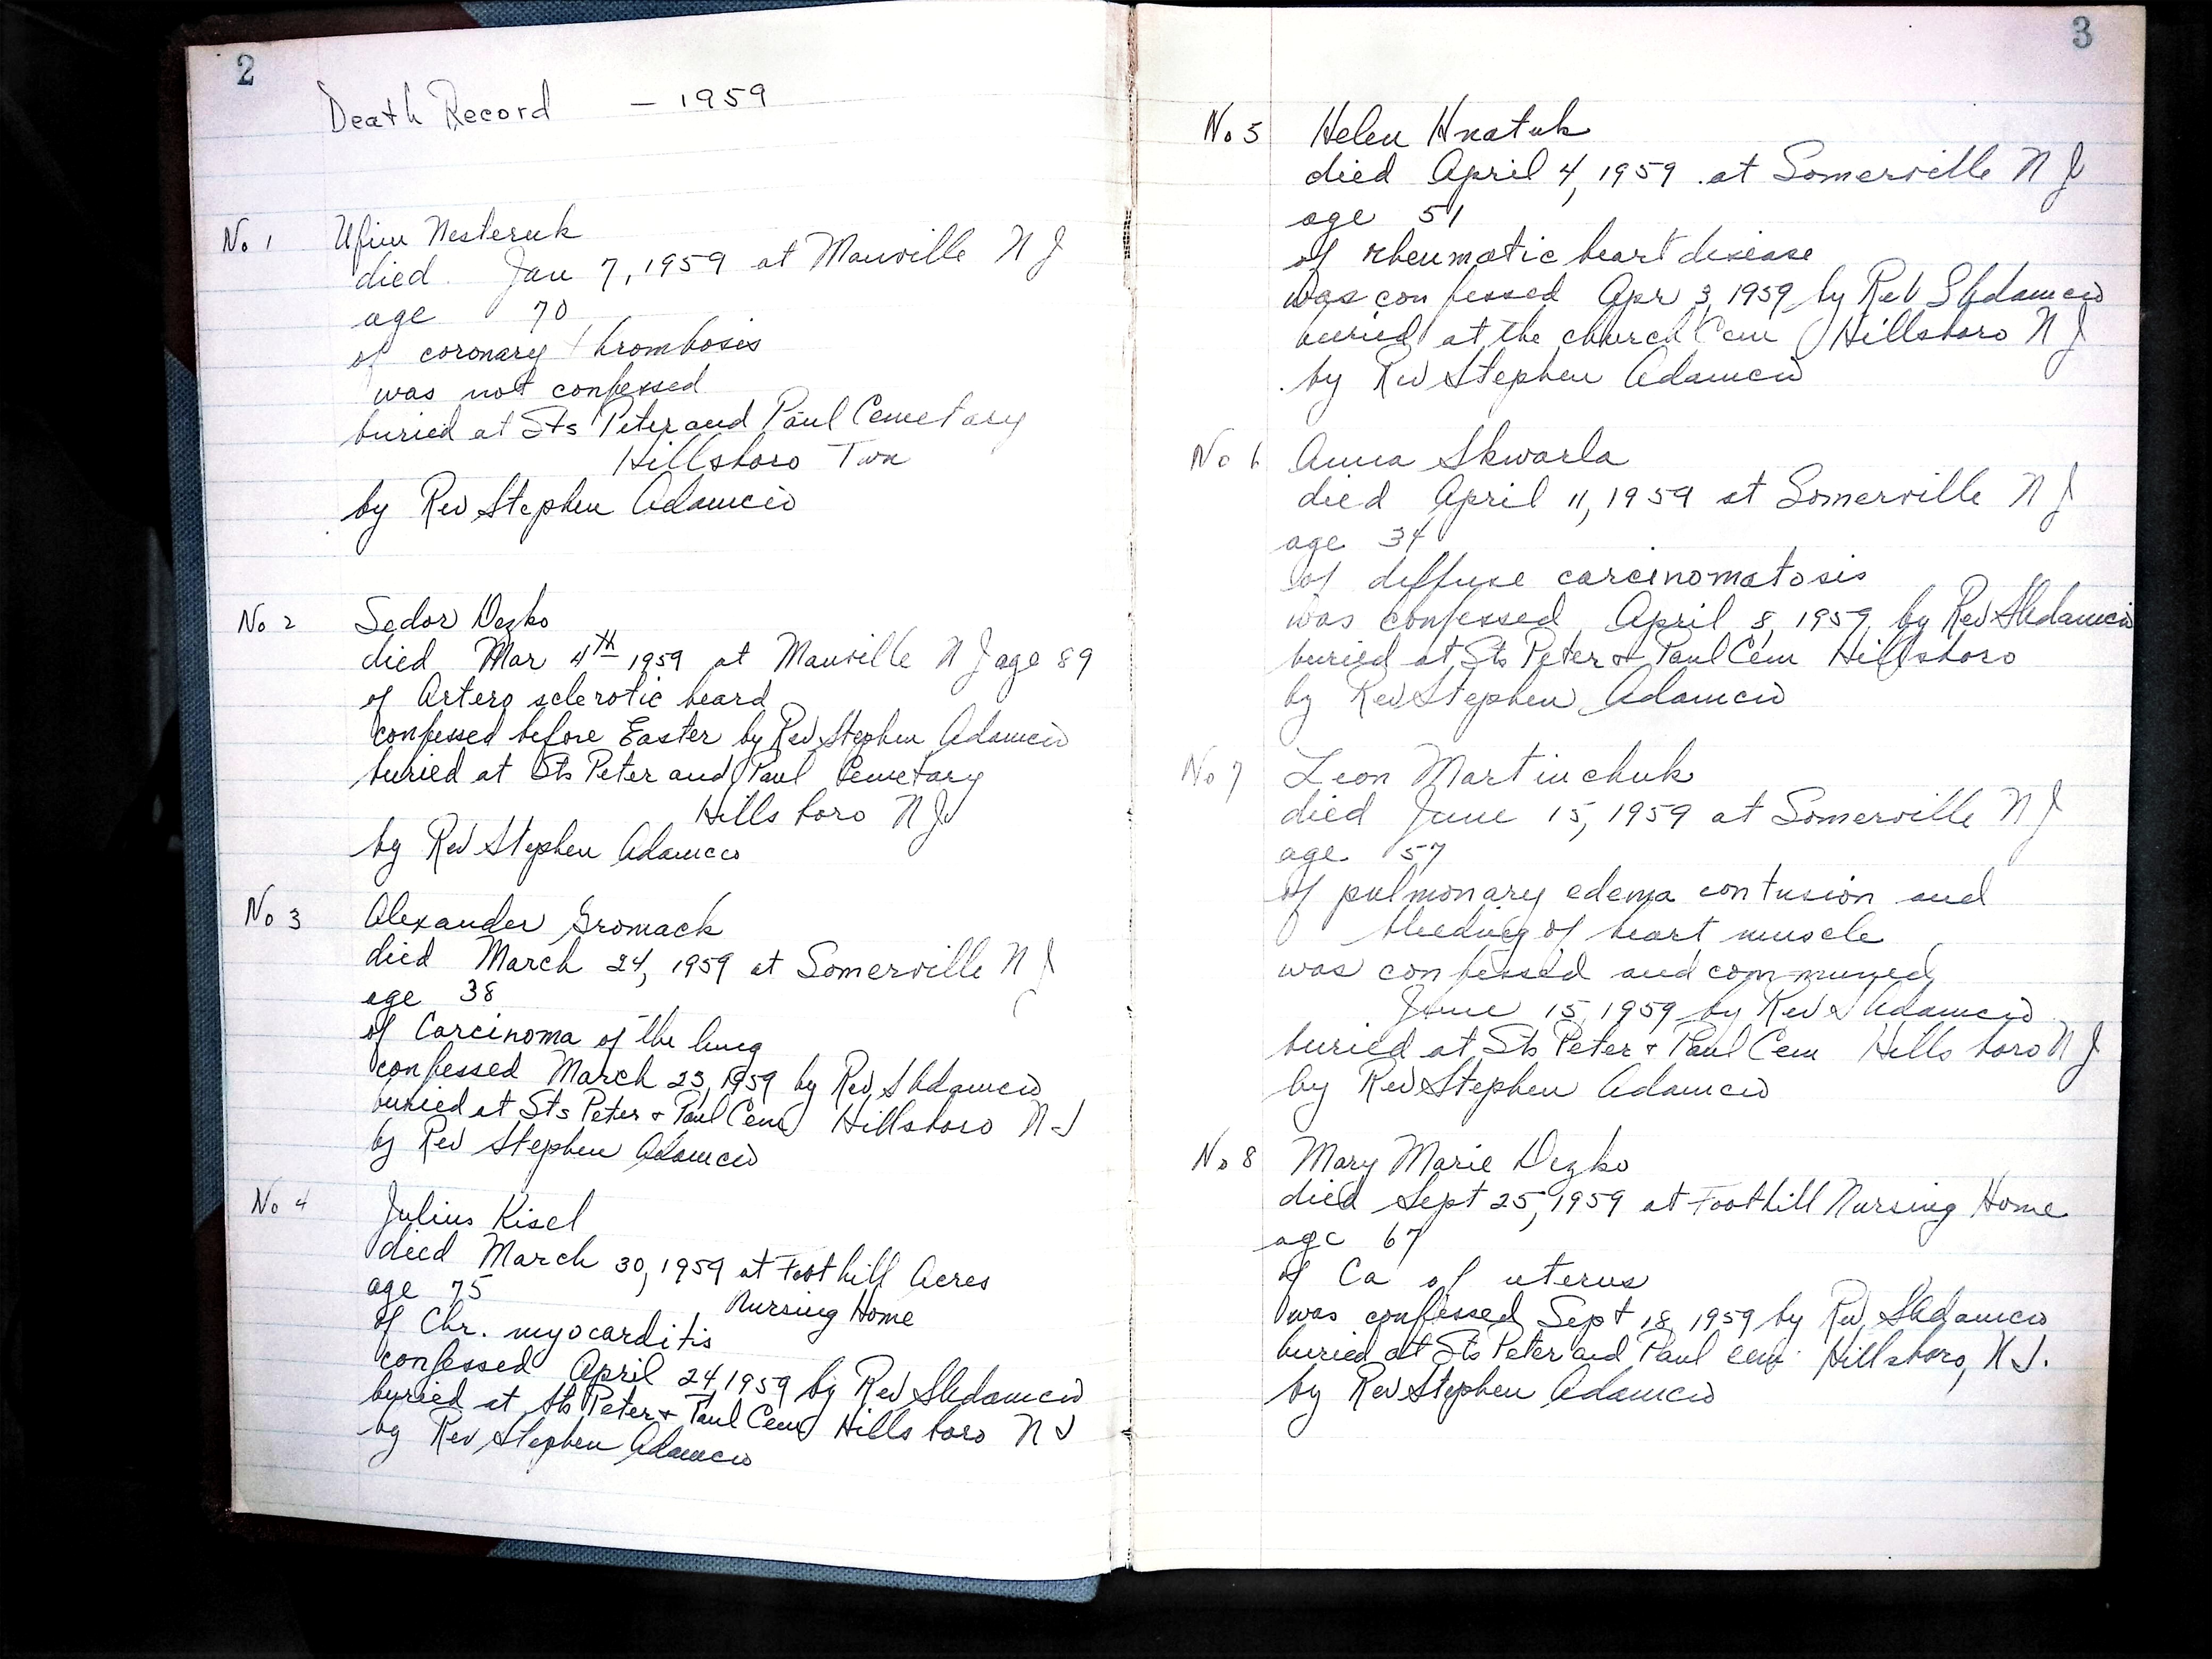 2
Death Record - 1959
No 1 Ufim Nesteruk
died. Jan 7, 1959 at Manville N J
age 70
of coronary thrombosis
was not confessed
buried at Sts Peter and Paul Cemetary
Hillsboro Twn
by Rev Stephen Adamcio
No 2 Sedor Dezko
died Mar 4th 1959 at Manville N J age 89
of Artero sclerotic heard
confessed before Easter by Rev Stephen Adamcio
buried at Sts Peter and Paul Cemetary
Hillsboro N J
by Rev Stephen Adamcio
No 3 Alexander Gromack
died March 24, 1959 at Somerville N J
age 38
of Carcinoma of the lung
confessed March 23, 1959 by Rev S Adamcio
buried at Sts Peter + Paul Cem Hillsboro N J
by Rev Stephen Adamcio
No 4 Julius Kisel
died March 30, 1959 at Foothill Acres
Nursing Home
age 75
of Chr. myocarditis
confessed April 24, 1959 by Rev S Adamcio
buried at Sts Peter + Paul Cem Hillsboro N J
by Rev Stephen Adamcio
3
No 5 Helen Hnatuk
died April 4, 1959 at Somerville N J
age 51
of rheumatic heart disease
was confessed Apr 3, 1959 by Rev S Adamcio
buried at the church Cem Hillsboro N J
by Rev Stephen Adamcio
No 6 Anna Skwarla
died April 11, 1959 at Somerville N J
age 34
of diffuse carcinomatosis
was confessed April 8, 1959 by Rev S Adamcio
buried at Sts Peter + Paul Cem Hillsboro
by Rev Stephen Adamcio
No 7 Leon Martinchuk
died June 15, 1959 at Somerville N J
age 57
of pulmonary edema contusion and
bleeding of heart muscle
was confessed and communed
June 15, 1959 by Rev S Adamcio
buried at Sts Peter + Paul Cem Hillsboro N J
by Rev Stephen Adamcio
No 8 Mary Marie Dezko
died Sept 25, 1959 at Foothill Nursing Home
age 67
of Ca of uterus
was confessed Sept 18, 1959 by Rev S Adamcio
buried at Sts Peter and Paul cem. Hillsboro, N J.
by Rev Stephen Adamcio